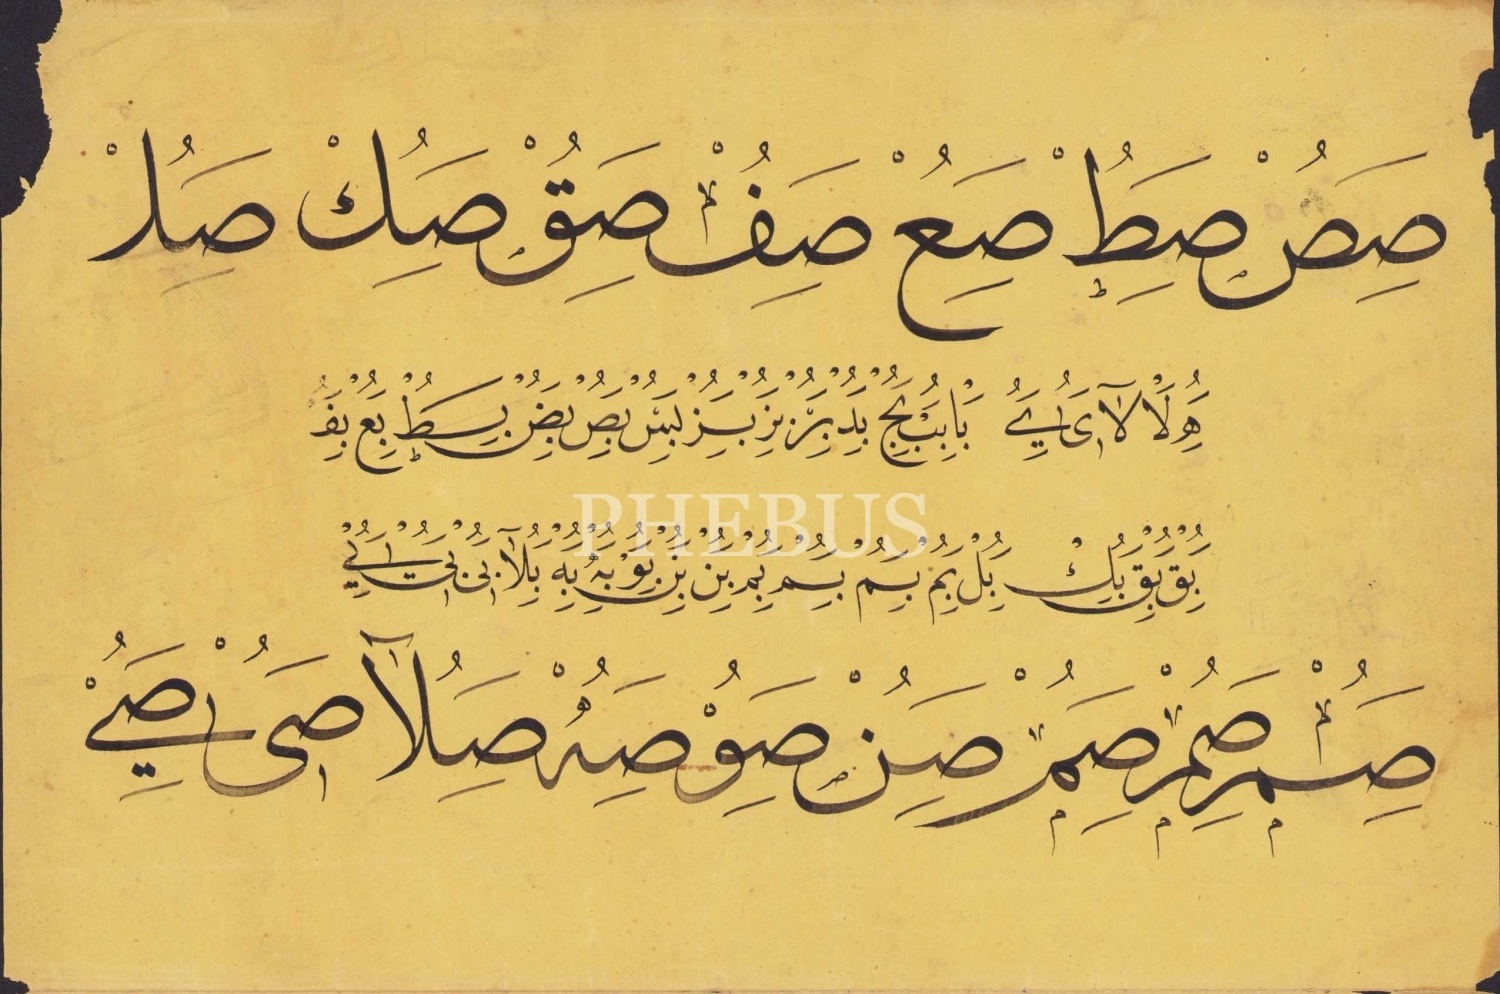 صص صط صع صف صق صك صل
ه و لا لا ى ے با بب بج بد بر بز بس بص بض بسط بع بف
PHEBUS
بق بق بك بل بم بسم بسم بم بن بن بو به به بلا بى بى بے
صم صم صم صن صو صه صلا صى صے